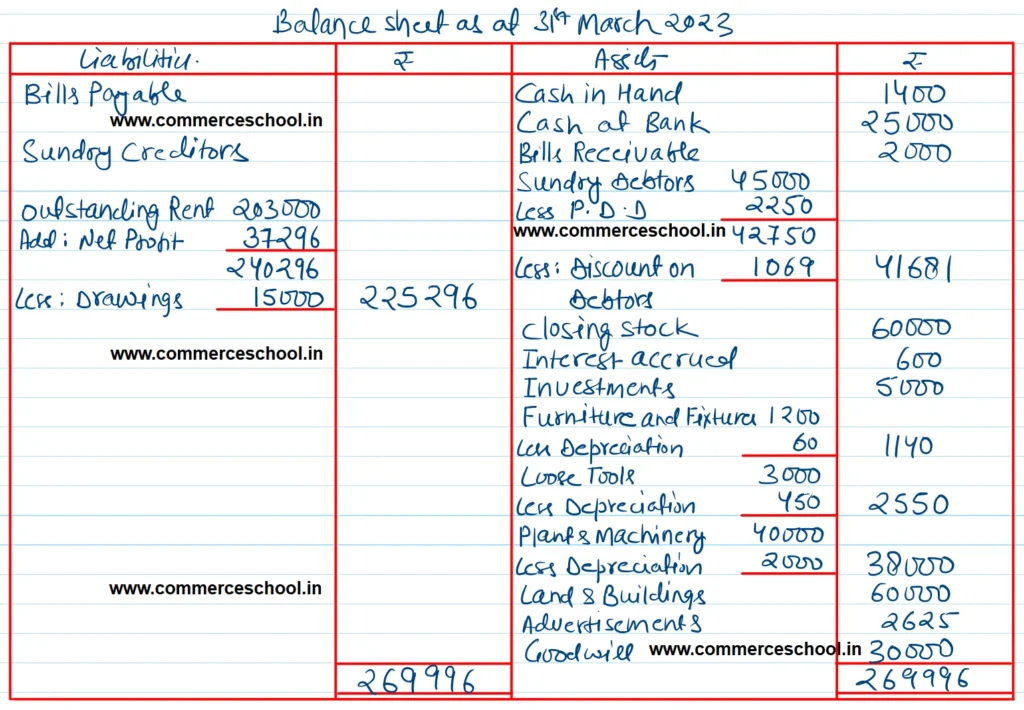 Balance sheet as at 31st March 2023
Liabilities. ₹ Assets ₹
Bills Payable Cash in Hand 1400
www.commerceschool.in Cash at Bank 25000
Sundry Creditors Bills Receivable 2000
Sundry Debtors 45000
Outstanding Rent 203000 Less P.D.D 2250
Add: Net Profit 37296 www.commerceschool.in 42750
240296 Less: Discount on 1069 41681
Less: Drawings 15000 225296 Debtors
Closing stock 60000
www.commerceschool.in Interest accrued 600
Investments 5000
Furniture and Fixture 1200
Less Depreciation 60 1140
Loose Tools 3000
Less Depreciation 450 2550
Plant & Machinery 40000
www.commerceschool.in Less Depreciation 2000 38000
Land & Buildings 60000
Advertisements 2625
Goodwill www.commerceschool.in 30000
269996 269996